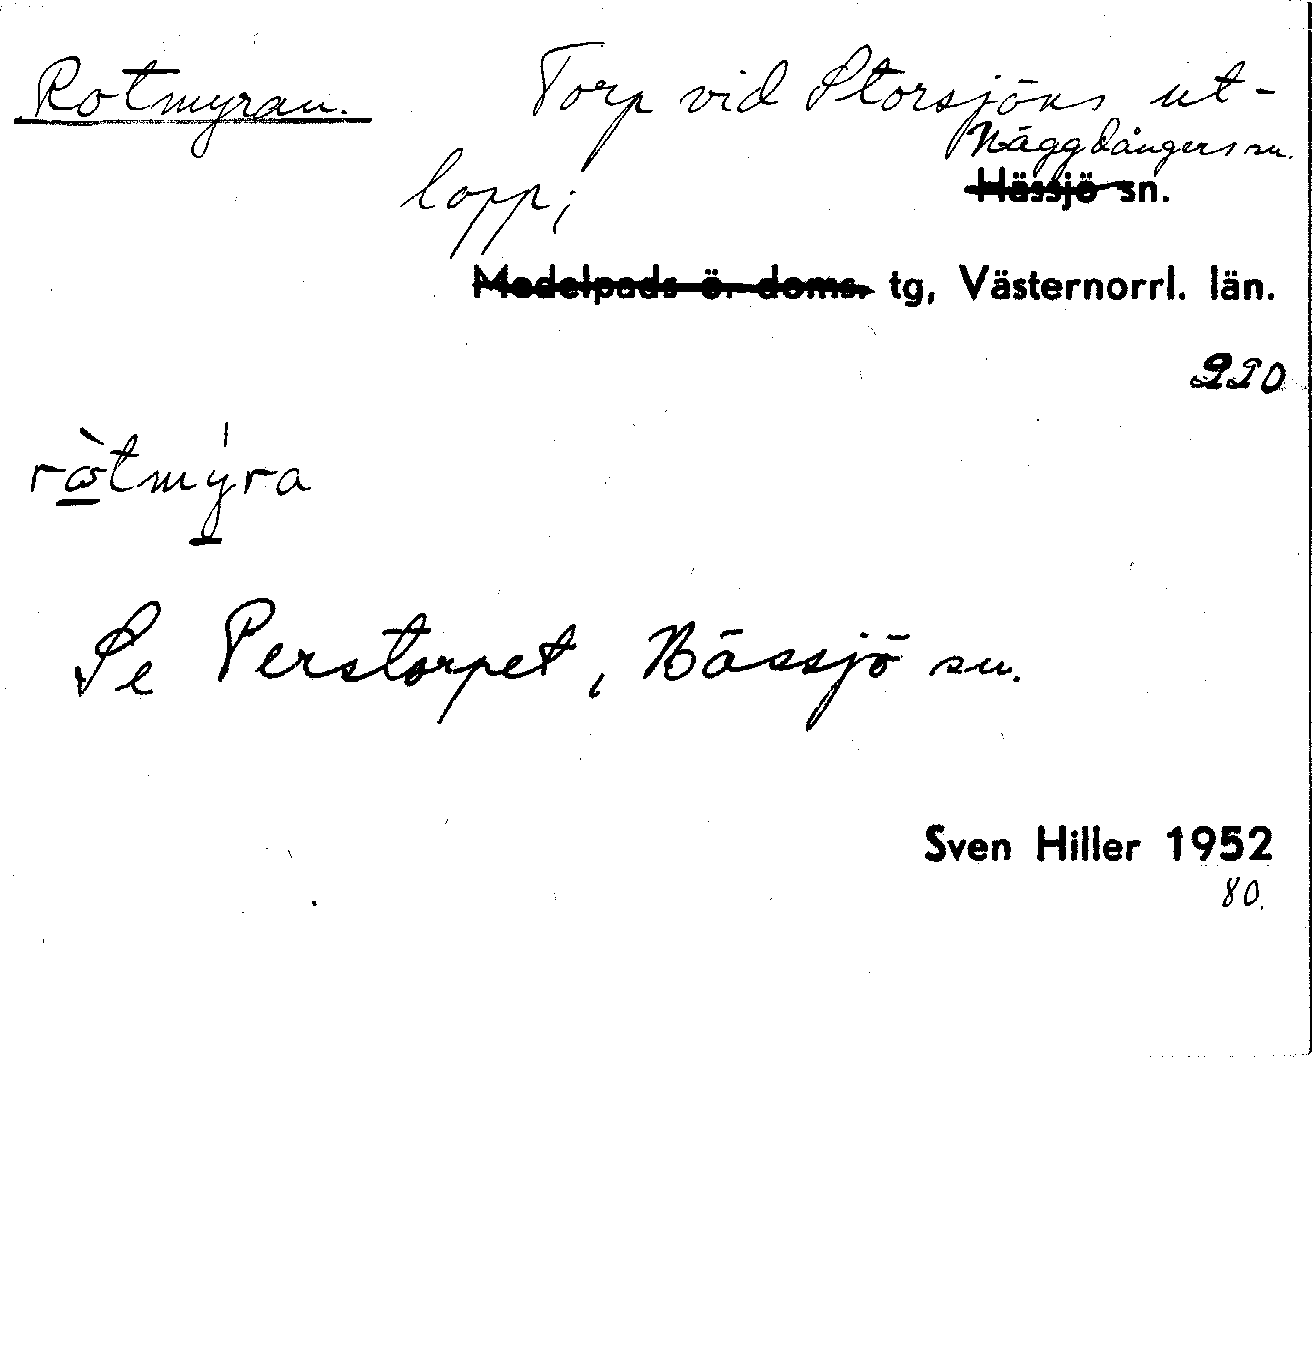 Rotmyran. Torp vid Storsjöns ut-
Häggdångers sn.
lopp; Hässjö sn.
Medelpads ö. doms. tg, Västernorrl. län.
220
Se Perstorpet, Hässjö sn.
Sven Hiller 1952
80.